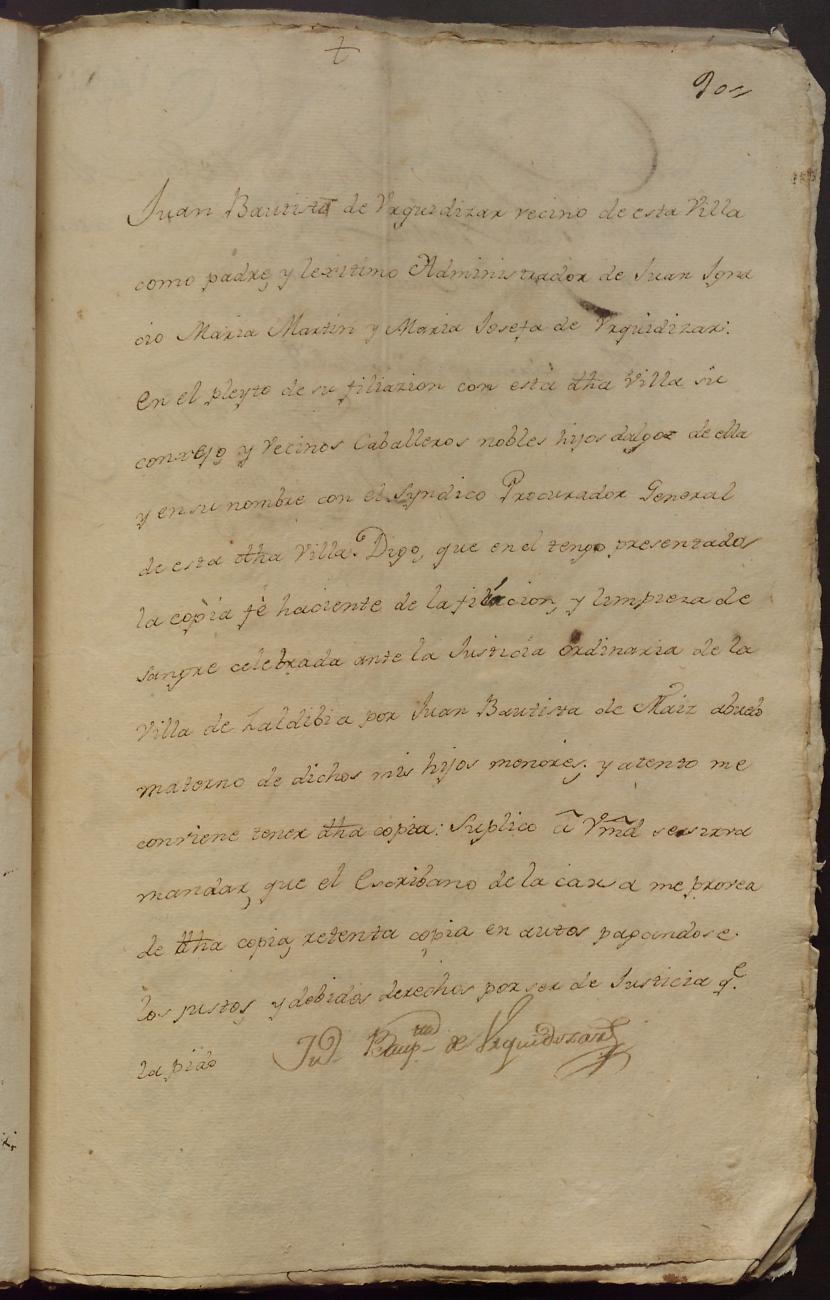 +
90
Juan Bautista de Vrquidizar vecino de esta Villa
como padre, y lexitimo Administrador de Juan Igna
cio Maria Martin y Maria Josefa de Vrquidizar:
en el pleyto de su filiazion con esta dha Villa su
conzejo y Vecinos Caballeros nobles hijos dalgos de ella
y en su nombre con el Syndico Procurador General
de esta dha Villa. Digo, que en el tengo presentados
la copia fe haciente de la filacion, y limpieza de
sangre celebrada ante la Justicia ordinaria de la
Villa de Zaldibia por Juan Bautista de Maiz abuelo
materno de dichos mis hijos menores; y atento me
conviene tener dha copia: Suplico â Vmd se sirva
mandar, que el Escribano de la causa me provea
de dha copia, retenta copia en autos pagandose
los justos, y debidos derechos por ser de Justicia qe
la pido Jun Baupta de Vrquidizar